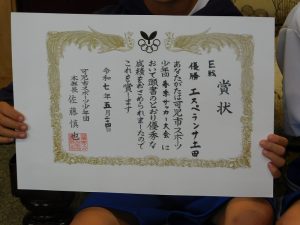 賞状
E戦
優勝 エスペランサ土田
あなたがたは可児市スポーツ
少年団春季サッカー大会に
おいて頭書のとおり優秀な
成績をおさめられましたので
これを賞します
令和七年五月二四日
可児市スポーツ少年団
本部長 佐藤慎也